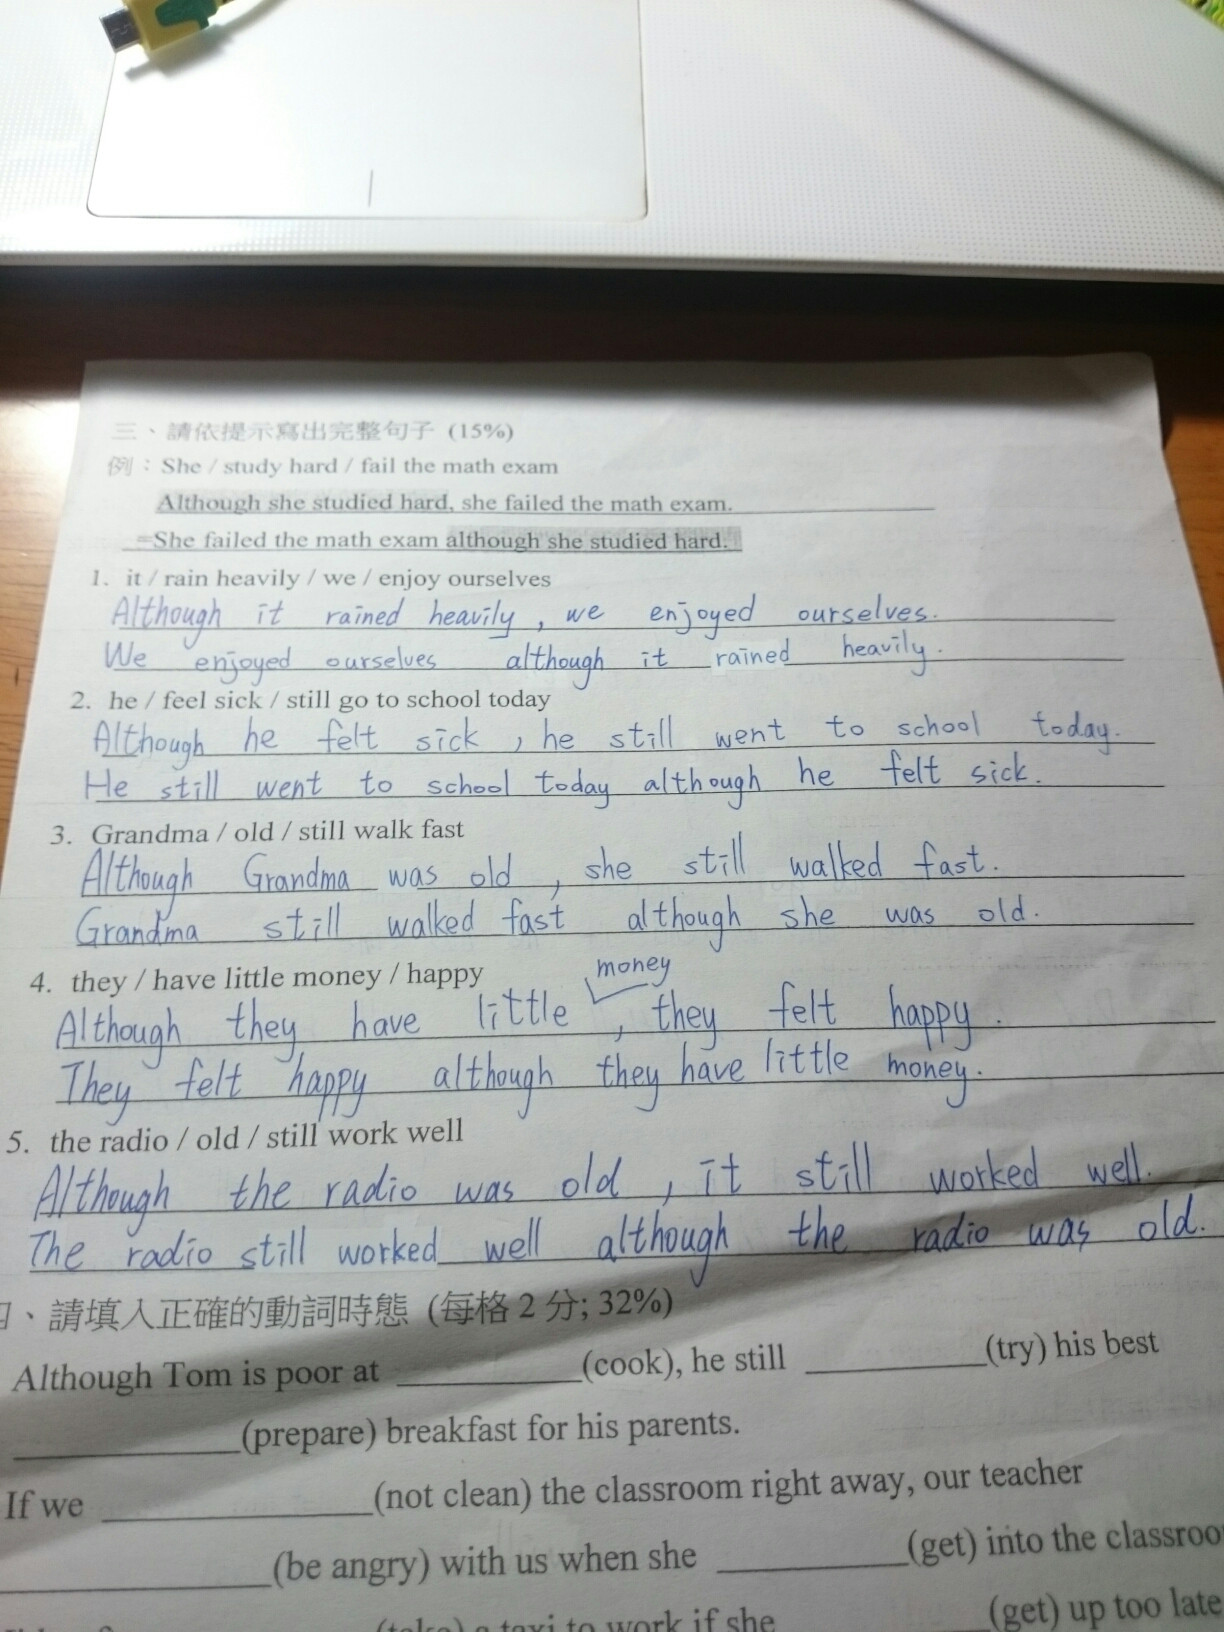 三、請依提示寫出完整句子 (15%)
例：She / study hard / fail the math exam
Although she studied hard, she failed the math exam.
=She failed the math exam although she studied hard.
1. it / rain heavily / we / enjoy ourselves
Although it rained heavily, we enjoyed ourselves.
We enjoyed ourselves although it rained heavily.
2. he / feel sick / still go to school today
Although he felt sick, he still went to school today.
He still went to school today although he felt sick.
3. Grandma / old / still walk fast
Although Grandma was old, she still walked fast.
Grandma still walked fast although she was old.
4. they / have little money / happy
money
Although they have little, they felt happy.
They felt happy although they have little money.
5. the radio / old / still work well
Although the radio was old, it still worked well.
The radio still worked well although the radio was old.
、請填入正確的動詞時態 (每格 2 分; 32%)
Although Tom is poor at ________ (cook), he still ________ (try) his best
________ (prepare) breakfast for his parents.
If we ________ (not clean) the classroom right away, our teacher
________ (be angry) with us when she ________ (get) into the
(take) a taxi to work if she ________ (get) up too late